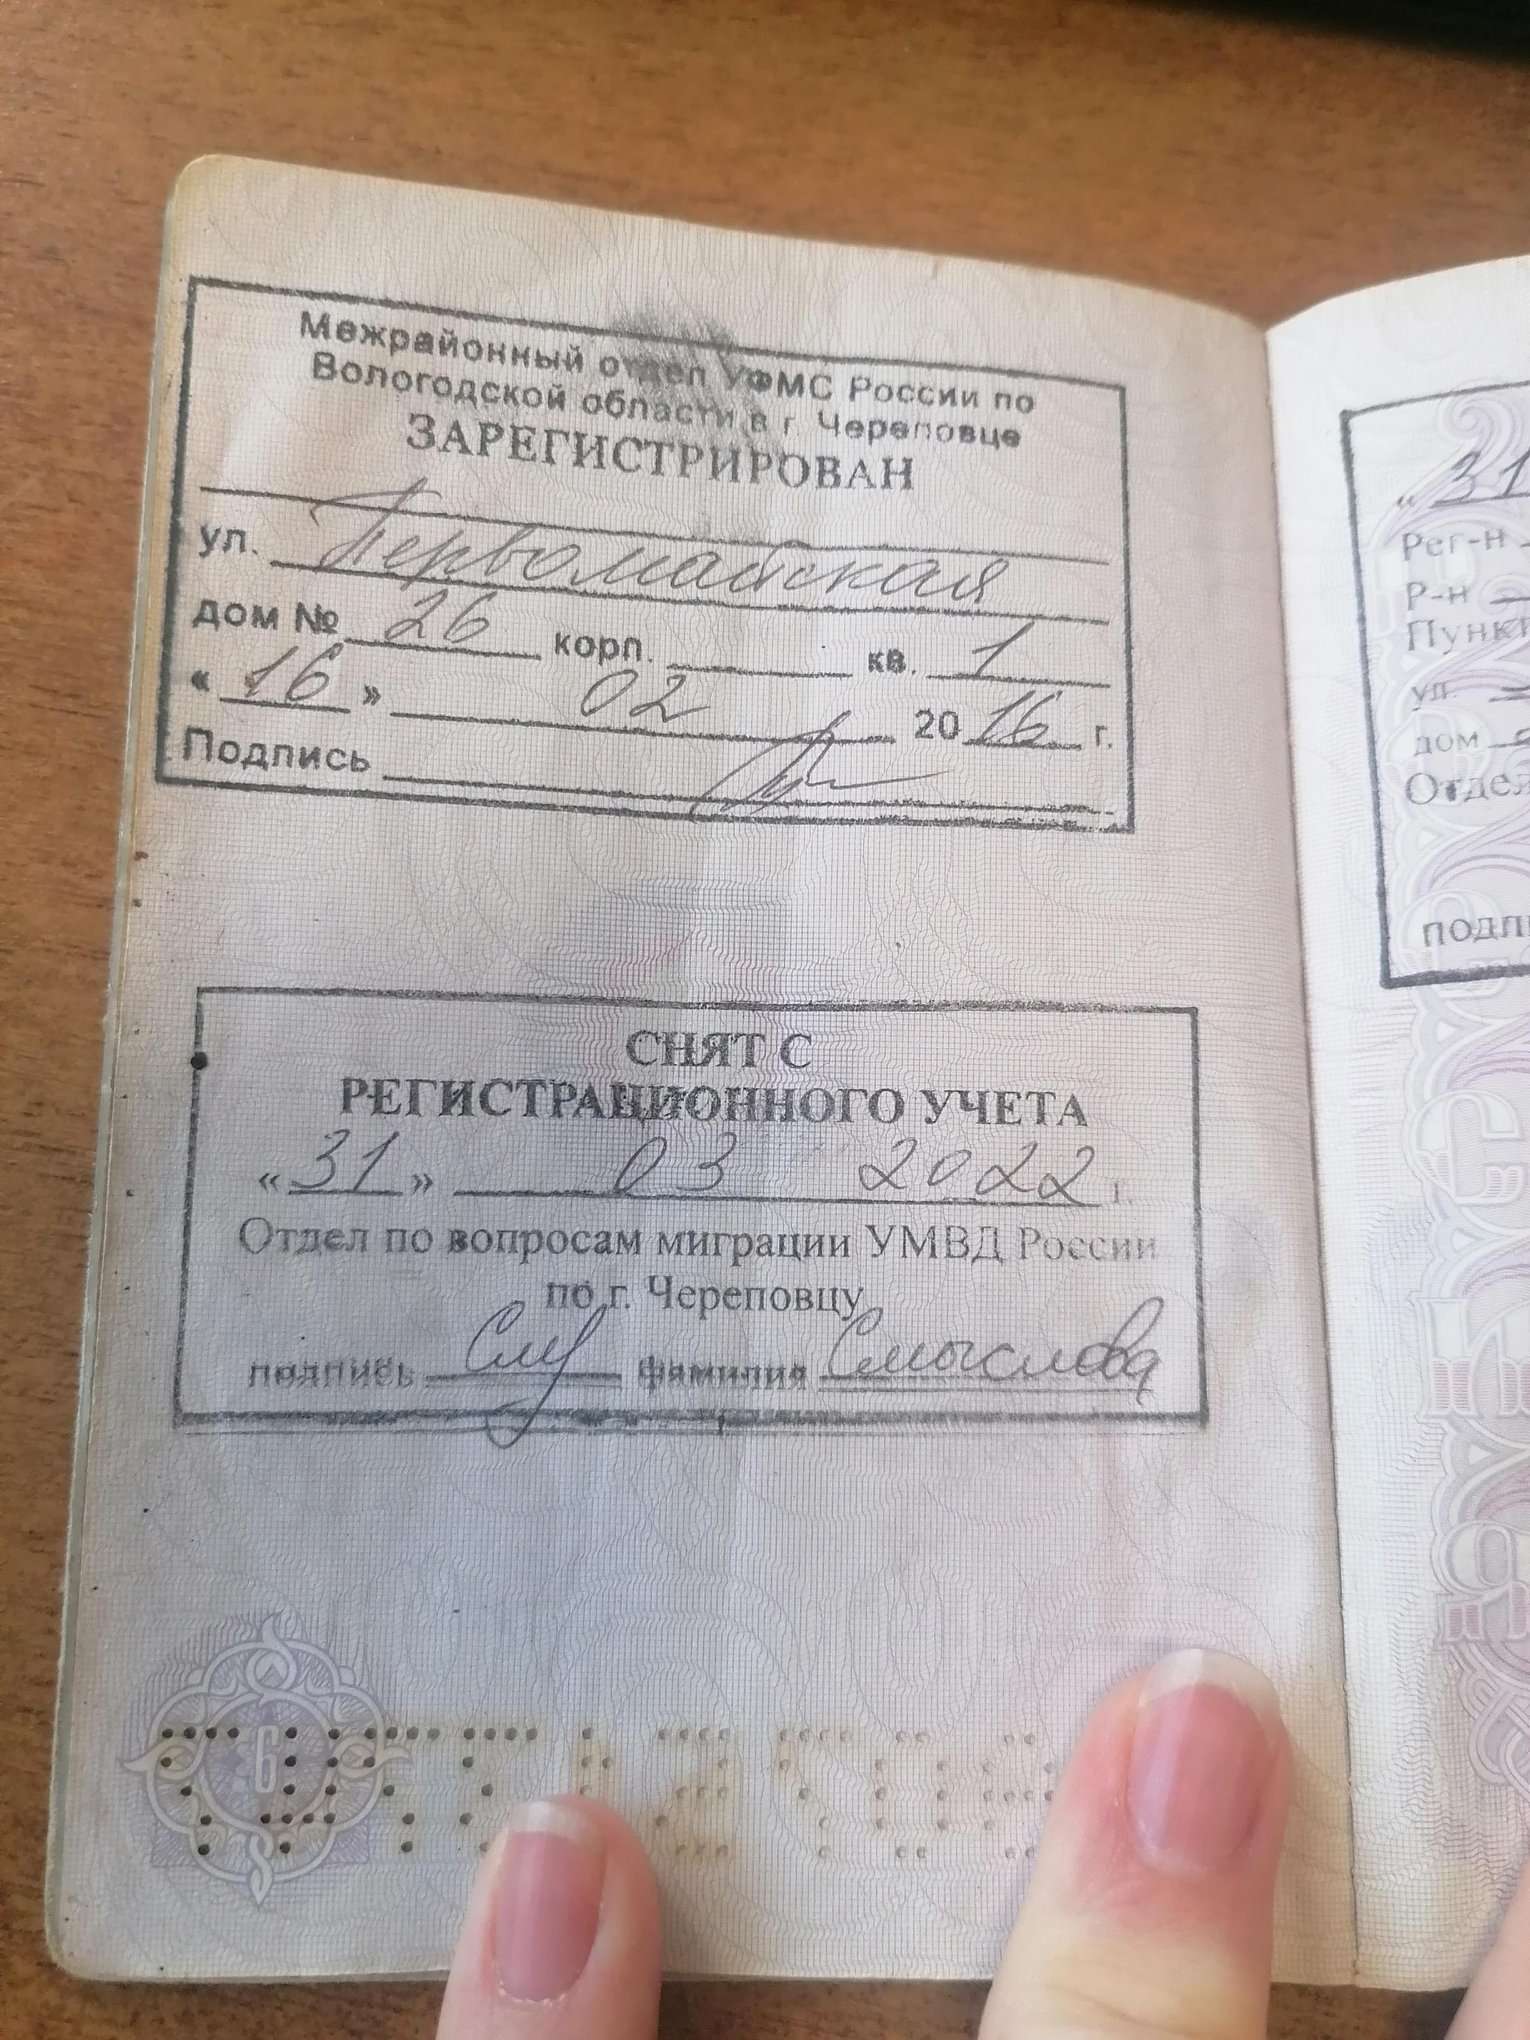 Межрайонный отдел УФМС России по
Вологодской области в г Череповце
ЗАРЕГИСТРИРОВАН
ул. Первомайская
дом № 26 корп. кв. 1
« 16 » 02 20 16 г.
Подпись
СНЯТ С
РЕГИСТРАЦИОННОГО УЧЕТА
« 31 » 03 2022 г.
Отдел по вопросам миграции УМВД России
по г. Череповцу
подпись фамилия Смыслова
6
« 31
Рег-н
Р-н
Пункт
ул.
дом
Отдел